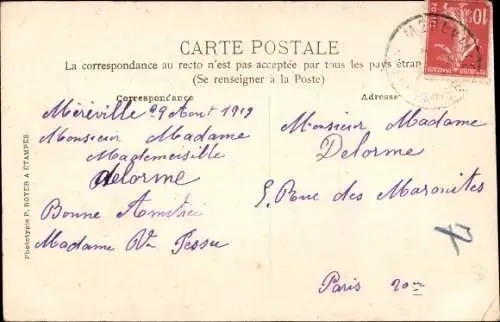 CARTE POSTALE
La correspondance au recto n'est pas acceptée par tous les pays étran
(Se renseigner à la Poste)
Correspondance
Méréville 29 Aout 1919
Monsieur Madame
Mademeisille
delorme
Bonne Amitié
Madame Vve
Adresse
Monsieur Madame
Delorme
5. Rue des Maronites
Paris 20me
Phototypie P. ROYER A ÉTAMPES
10